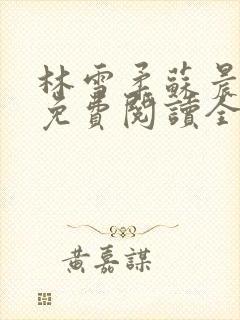 林雪柔蘇晨
免費閱讀全
黃嘉謀